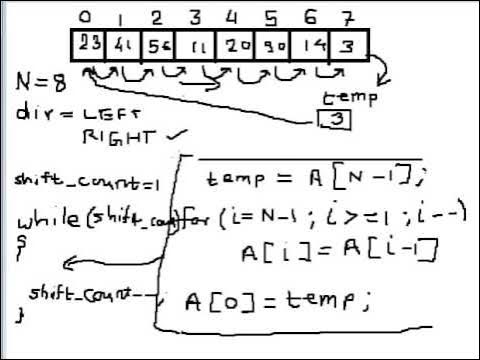 0 1 2 3 4 5 6 7
23 41 56 11 20 90 14 3
temp
3
N=8
dir = LEFT
RIGHT ✓
shift_count=1
while(shift_count)
{
shift_count--;
}
temp = A[N-1];
for (i=N-1 ; i>=1 ; i--)
A[i]=A[i-1]
A[0]=temp;